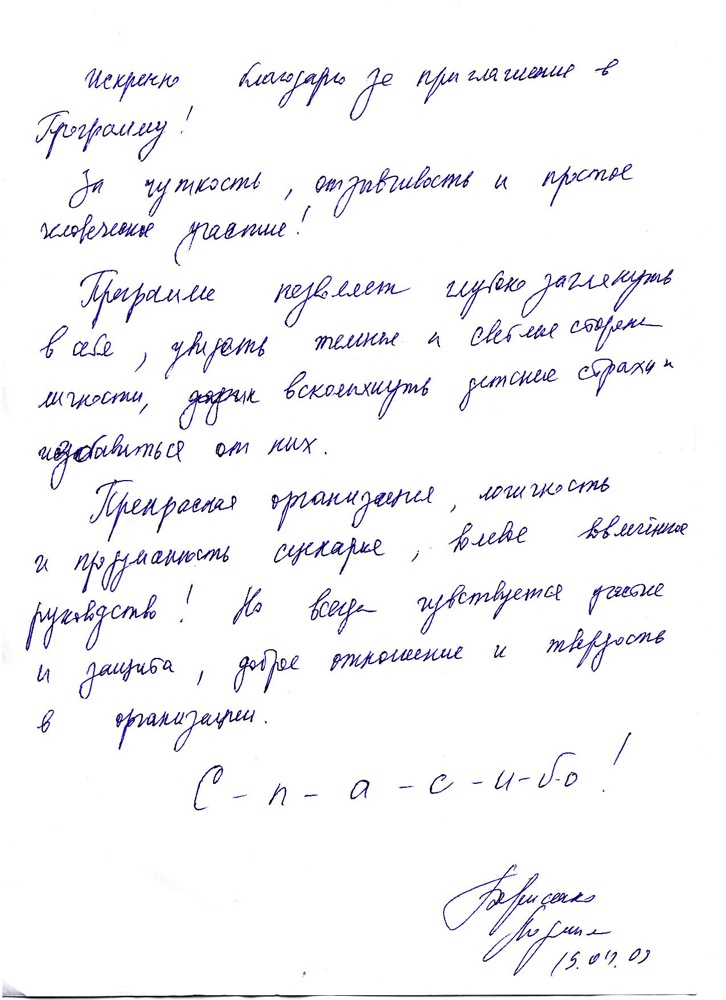 Искренно благодарю за приглашение в
Программу!
За чуткость, отзывчивость и простое
человеческое участие!
Программа позволяет глубоко заглянуть
в себя, увидеть темные и светлые стороны
личности, всколыхнуть детские страхи и
избавиться от них.
Прекрасная организация, логичность
и продуманность сценария, волевое
руководство! Но всегда чувствуется участие
и защита, доброе отношение и твердость
в организации.
С-п-а-с-и-б-о!
Борисенко